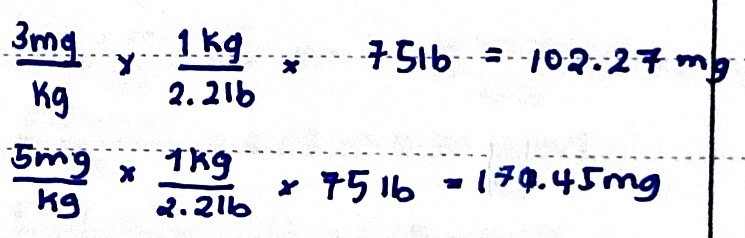 3mg/Kg x 1 Kg/2.2lb x 75lb = 102.27 mg
5mg/kg x 1kg/2.2lb x 75 lb = 170.45mg